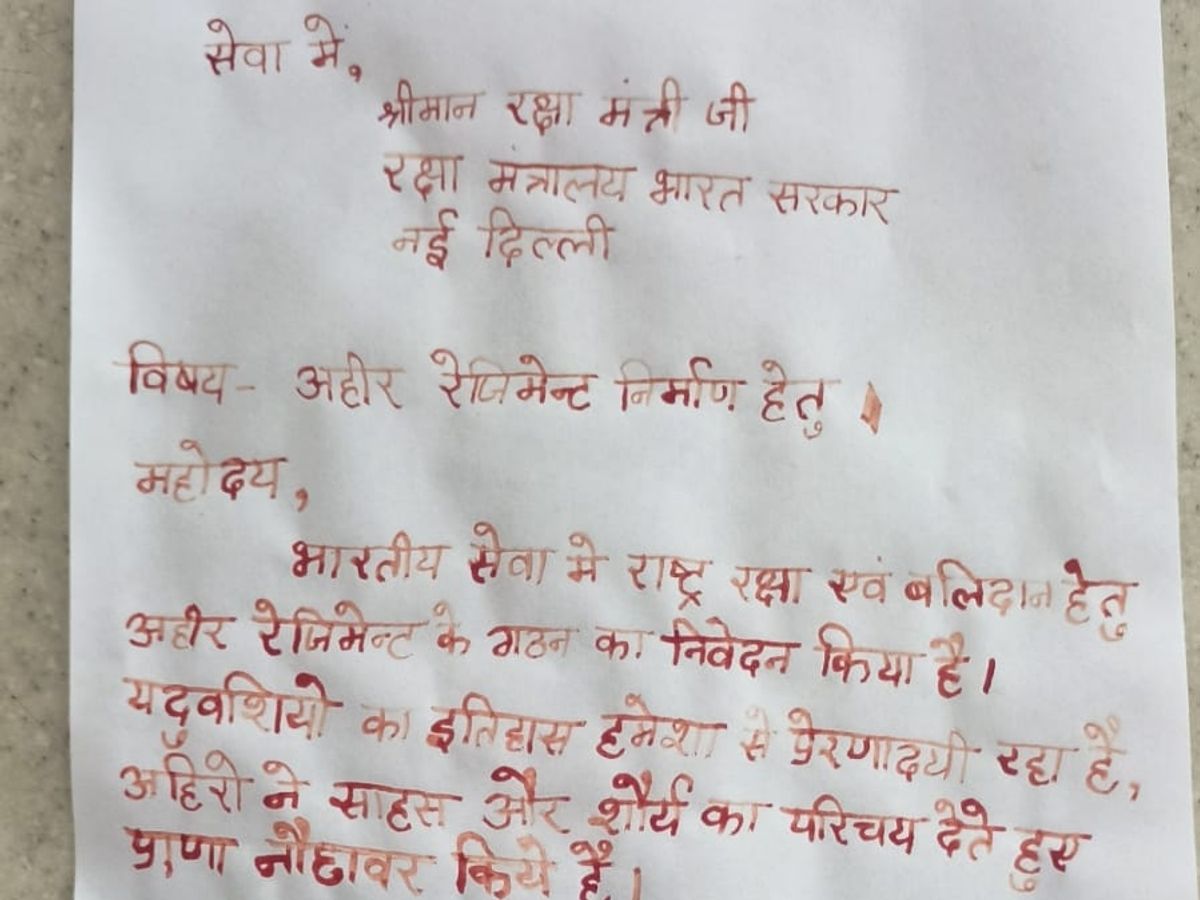 सेवा में,
श्रीमान रक्षा मंत्री जी
रक्षा मंत्रालय भारत सरकार
नई दिल्ली
विषय - अहीर रेजिमेन्ट निर्माण हेतु।
महोदय,
भारतीय सेवा मे राष्ट्र रक्षा एवं बलिदान हेतु
अहीर रेजिमेन्ट के गठन का निवेदन किया है।
यदुवशियो का इतिहास हमेशा से प्रेरणादयी रहा है,
अहिरो ने साहस और शौर्य का परिचय देते हुए
प्राणा नौछावर किये है।